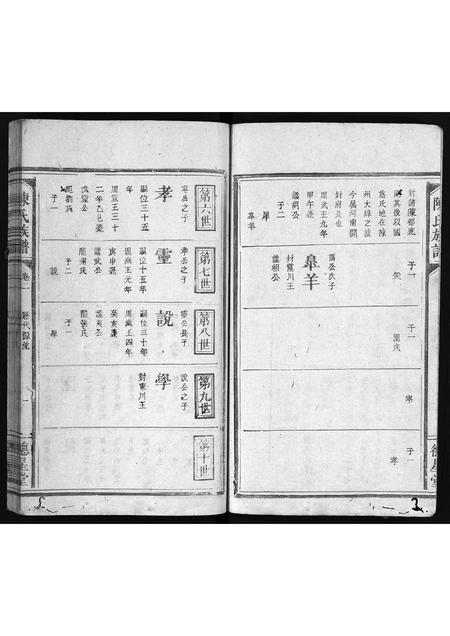 陳氏族譜
封諸陳都宛
其後以國
為氏地在陳
州太皡之墟
今屬河南開
封府是也
周武王九年
甲午薨
諡胡公
子二
犀
皋羊
子一
突
子一
圉戎
子一
寧
子一
孝
滿公次子
皋羊
封靈川王
諡相公
德星堂
第六世
寧公之子
孝
嗣位三十五
年
周厲王三十
二年乙巳薨
諡靈公
配劉氏
子一
第七世
孝公之子
靈
嗣位十五年
周宣王元年
庚申薨
諡武公
配張氏
子二
說
第八世
靈公長子
說
嗣位三十年
周幽王四年
癸亥薨
諡夷公
配張氏
子一
學
第九世
說公之子
學
封東川王
第十世
陳氏族譜
卷一
歷代源流
一
德星堂